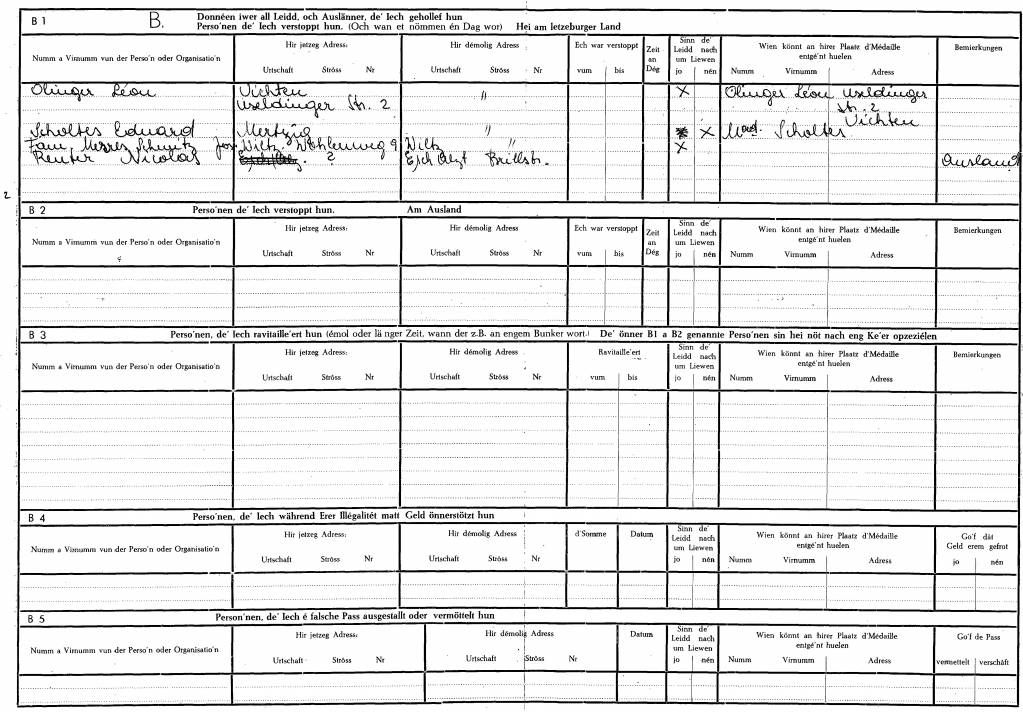 B 1 B. Donnéen iwer all Leidd, och Auslänner, de' Iech gehollef hun
Perso'nen de' Iech verstoppt hun. (Och wan et nömmen én Dag wor) Hei am letzeburger Land
Numm a Virnumm vun der Perso'n oder Organisatio'n
Hir jetzeg Adress:
Urtschaft Ströss Nr
Hir démolig Adress
Urtschaft Ströss Nr
Ech war verstoppt
vum bis
Zeit
an
Dég
Sinn de'
Leidd nach
um Liewen
jo nén
Wien könnt an hirer Plaatz d'Médaille
entgé'nt huelen
Numm Virnumm Adress
Bemierkungen
Olinger Léon Vichten " X Olinger Léon Useldinger
Useldinger Str. 2 Str. 2
Vichten
Scholtes Eduard Mertzig " X Mad. Scholtes
Fam. Jos Wiltz 9 Wiltz " X
Reuter Nicolas ? Esch Alzt Brillstr. Ausland
2
B 2 Perso'nen de' Iech verstoppt hun. Am Ausland
Numm a Virnumm vun der Perso'n oder Organisatio'n
Hir jetzeg Adress:
Urtschaft Ströss Nr
Hir démolig Adress
Urtschaft Ströss Nr
Ech war verstoppt
vum bis
Zeit
an
Dég
Sinn de'
Leidd nach
um Liewen
jo nén
Wien könnt an hirer Plaatz d'Médaille
entgé'nt huelen
Numm Virnumm Adress
Bemierkungen
B 3 Perso'nen, de' Iech ravitaille'ert hun (émol oder länger Zeit, wann der z.B. an engem Bunker wort.) De' önner B1 a B2 genannte Perso'nen sin hei nöt nach eng Ke'er opzeziélen
Numm a Virnumm vun der Perso'n oder Organisatio'n
Hir jetzeg Adress:
Urtschaft Ströss Nr
Hir démolig Adress
Urtschaft Ströss Nr
Ravitaille'ert
vum bis
Sinn de'
Leidd nach
um Liewen
jo nén
Wien könnt an hirer Plaatz d'Médaille
entgé'nt huelen
Numm Virnumm Adress
Bemierkungen
B 4 Perso'nen, de' Iech während Erer Illégalitét matt Geld önnerstötzt hun
Numm a Virnumm vun der Perso'n oder Organisatio'n
Hir jetzeg Adress:
Urtschaft Ströss Nr
Hir démolig Adress
Urtschaft Ströss Nr
d'Somme
Datum
Sinn de'
Leidd nach
um Liewen
jo nén
Wien könnt an hirer Plaatz d'Médaille
entgé'nt huelen
Numm Virnumm Adress
Go'f dát
Geld erem gefrot
jo nén
B 5 Person'nen, de' Iech é falsche Pass ausgestallt oder vermöttelt hun
Numm a Virnumm vun der Perso'n oder Organisatio'n
Hir jetzeg Adress:
Urtschaft Ströss Nr
Hir démolig Adress
Urtschaft Ströss Nr
Datum
Sinn de'
Leidd nach
um Liewen
jo nén
Wien könnt an hirer Plaatz d'Médaille
entgé'nt huelen
Numm Virnumm Adress
Go'f de Pass
vermettelt verschäft